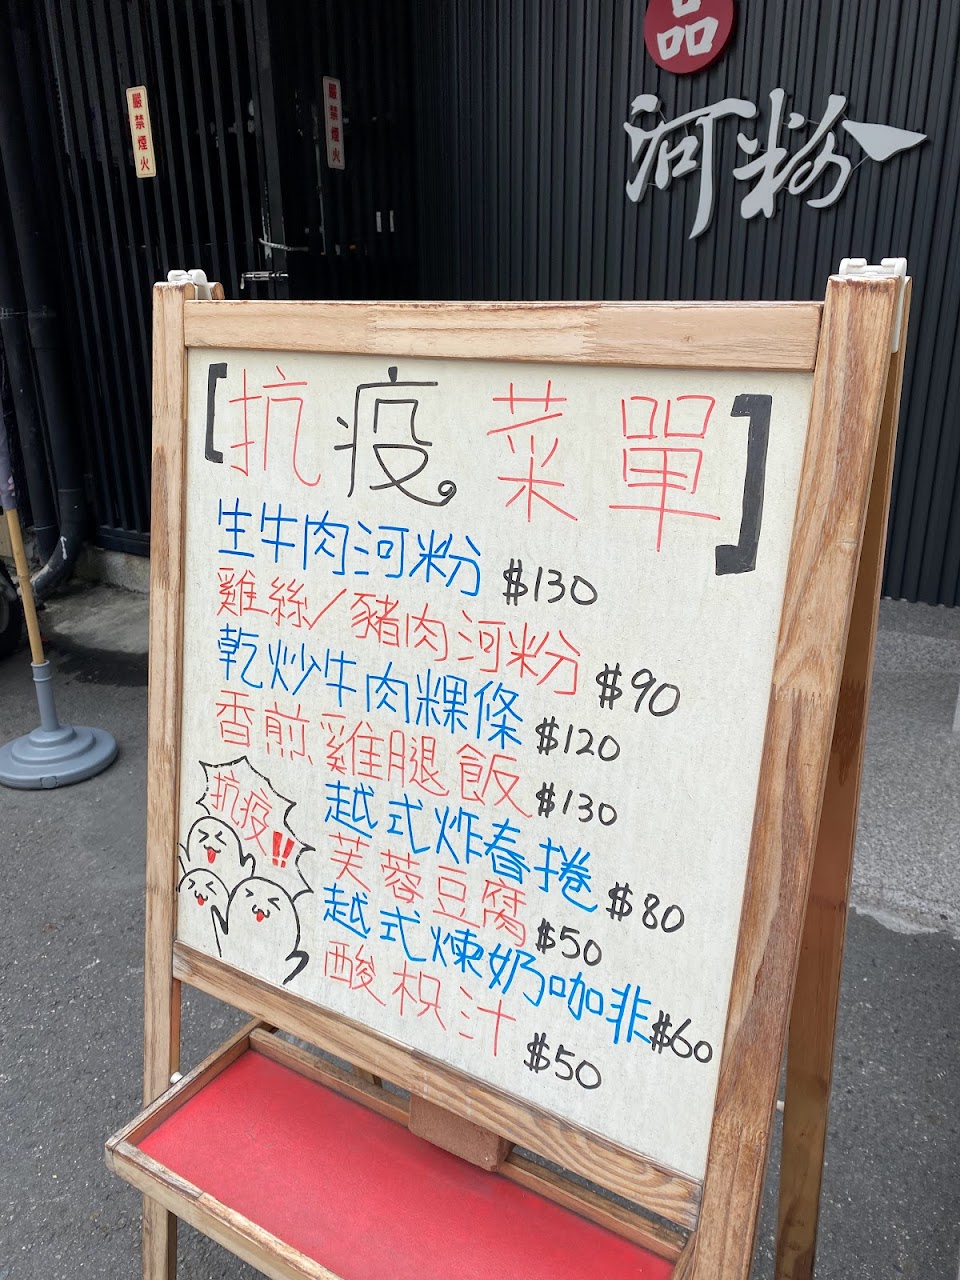 品
河粉
嚴禁煙火
嚴禁煙火
[抗疫菜單]
生牛肉河粉 $130
雞絲/豬肉河粉 $90
乾炒牛肉粿條 $120
香煎雞腿飯 $130
越式炸春捲 $80
芙蓉豆腐 $50
越式煉奶咖非 $60
酸枳汁 $50
抗疫!!